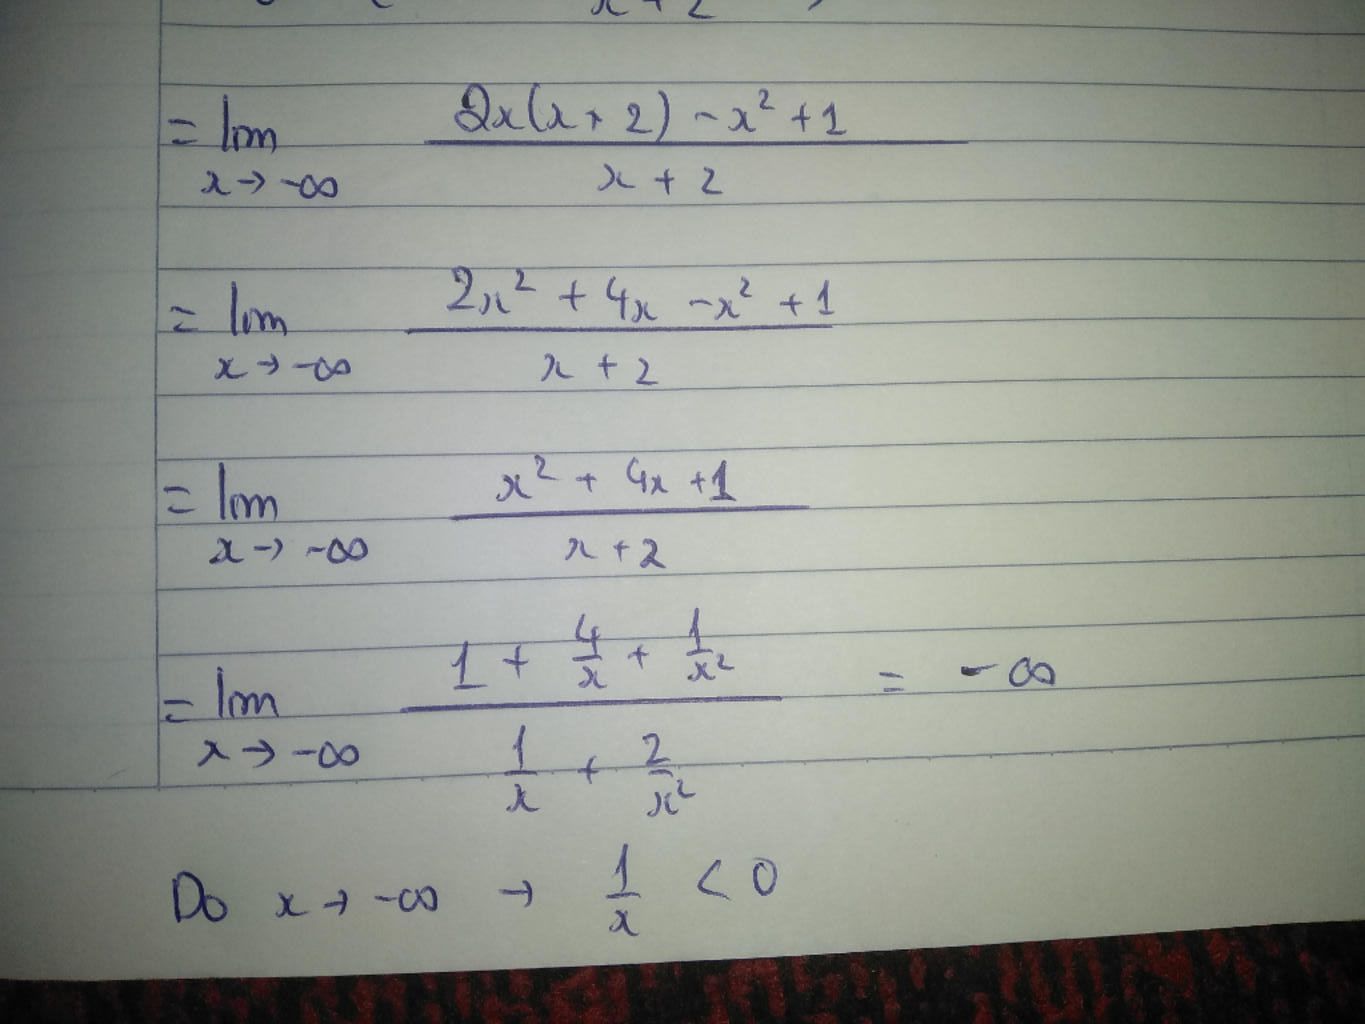 x + 2
= lim 2x(x + 2) - x² + 1
x → -∞ x + 2
= lim 2x² + 4x - x² + 1
x → -∞ x + 2
= lim x² + 4x + 1
x → -∞ x + 2
= lim 1 + 4/x + 1/x² = -∞
x → -∞ 1/x + 2/x²
Do x → -∞ → 1/x < 0